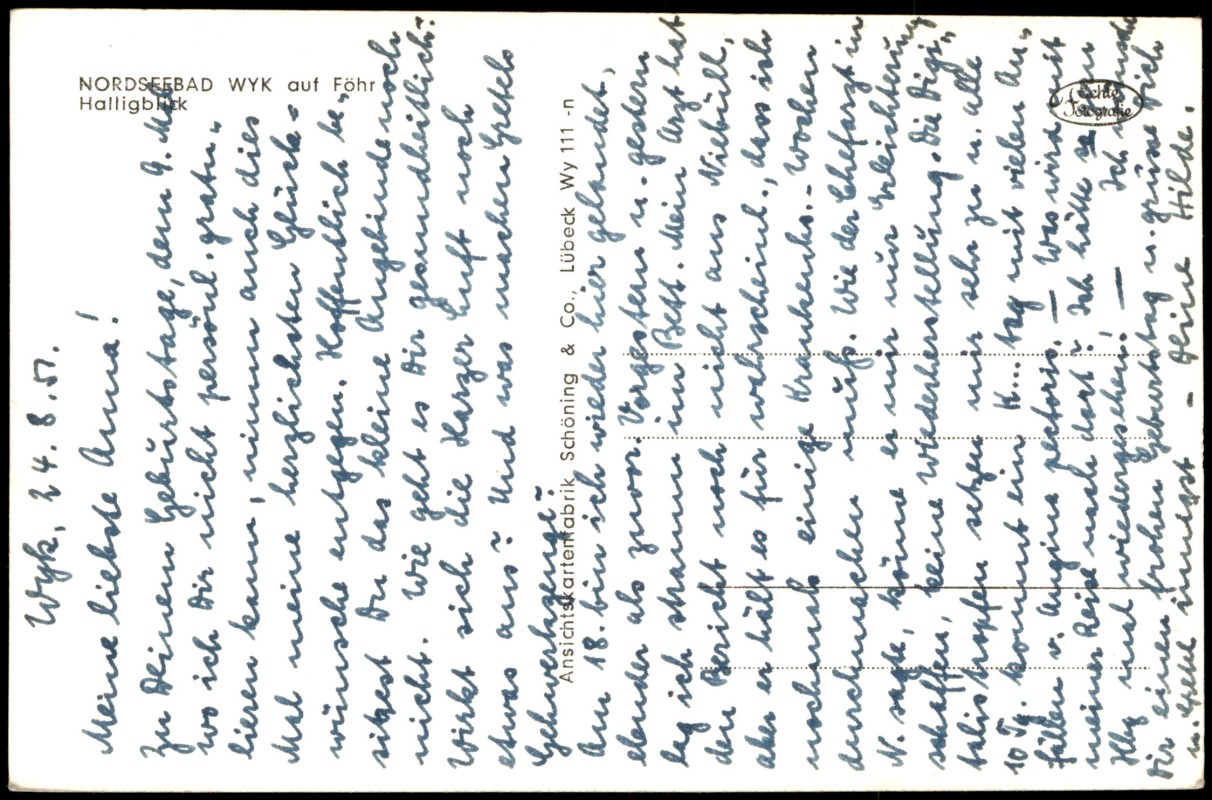 NORDSEEBAD WYK auf Föhr
Halligblick
echte
Fotografie
Ansichtskartenfabrik Schöning & Co., Lübeck Wy 111 -n
Wyk, 24.8.51.
Meine liebste Anna!
Zu Deinem Geburtstage, dem 9. Mal
wo ich Dir nicht persönl. gratu-
lieren kann, nimm auch dies
Mal meine herzlichsten Glück-
wünsche entgegen. Hoffentlich be-
sitzest Du das kleine Angebinde noch
nicht. Wie geht es Dir gesundheitlich?
Wirkt sich die Harzer Luft noch
etwas aus? Und was machen Gretels
Gehwerkzeuge?
Am 18. bin ich wieder hier gelandet,
elender als zuvor. Vorgestern u. gestern
lag ich stramm im Bett. Mein Arzt hat
den Bericht noch nicht aus Niebüll,
aber er hält es für wahrscheinl., dass ich
nochmals einige Krankenhs.-Wochen
durchmachen muß. Wie der Chefarzt in
N. sagte, könne er mir nur Erleichterung
schaffen, keine Wiederherstellung. Die Digi-
talistropfen setzen mir sehr zu u. alle
10 Tg. kommt ein K... tag mit vielen An-
fällen v. Angina pectoris. — Was wird mit
meiner Reise nach dort? Ich hätte so gern
mal wiedergesehen! — Ich wünsche
Dir einen frohen Geburtstag u. grüße Dich
u. Gretel innigst — Deine Hilde.